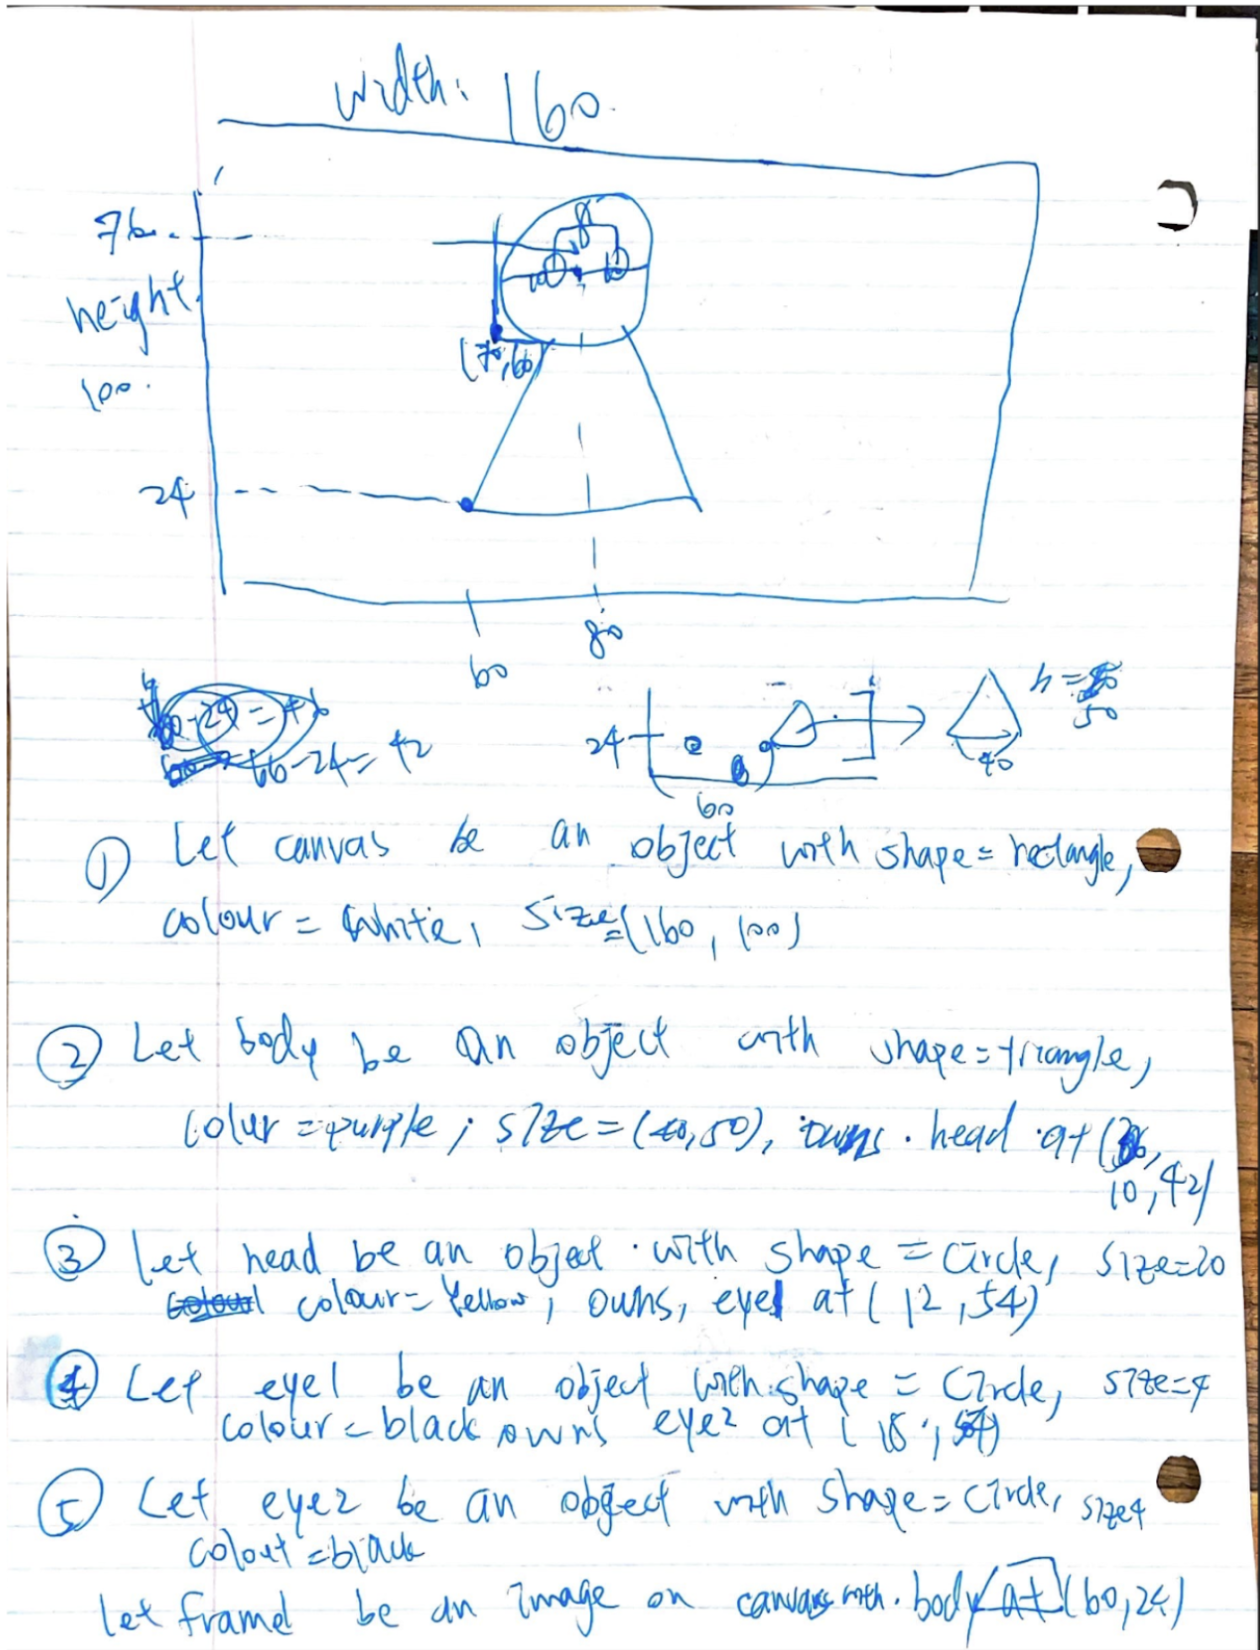 width: 160.
76.
height
100.
(70,60)
24
60
80
66-24= 42
24
60
h =
50
40
① Let canvas be an object with shape= rectangle,
colour = white, size=(160, 100)
② Let body be an object with shape=triangle,
colur =purple; size=(40,50), owns. head at (
10,42)
③ Let head be an object with shape = circle, size=20
colour= Yellow, owns, eye1 at ( 12,54)
④ Let eye1 be an object with shape = circle, size=4
colour=black owns eye2 at (18,54)
⑤ Let eye2 be an object with shape= circle, size4
colout =black
let frame1 be an image on canvars with. body at (60,24)